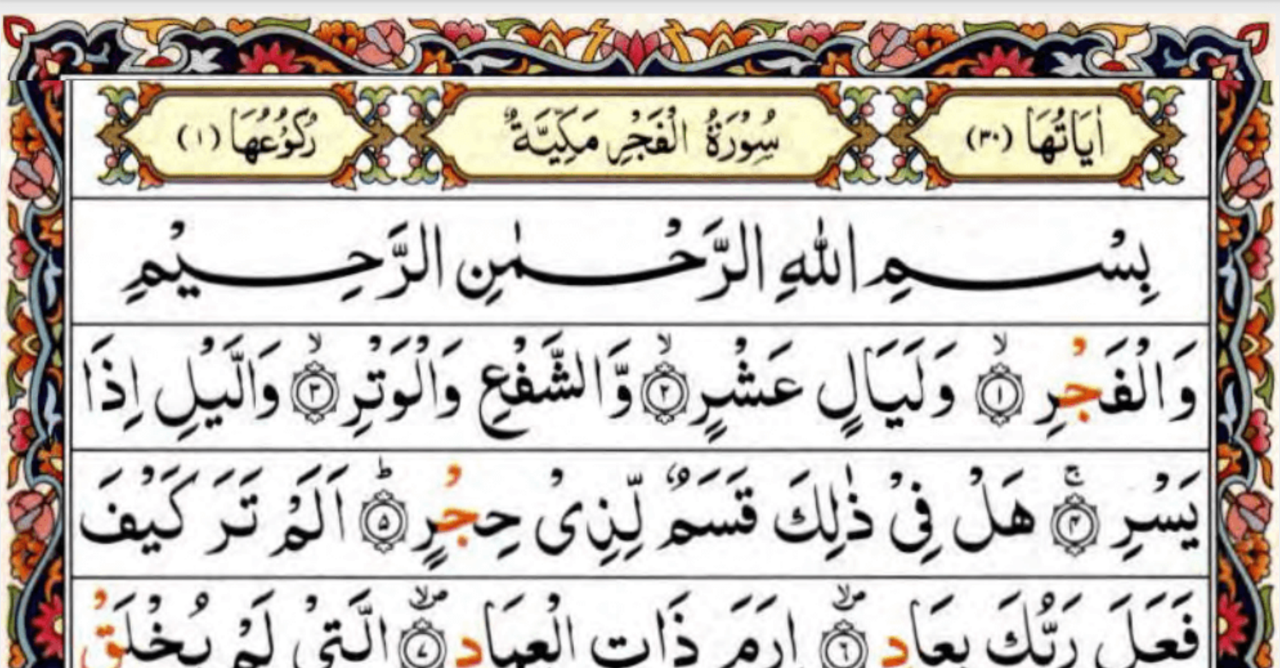 اٰيَاتُهَا (٣٠) سُوْرَةُ الْفَجْرِ مَكِّيَّةٌ رُكُوْعُهَا (١)
بِسْمِ اللهِ الرَّحْمٰنِ الرَّحِيْمِ
وَالْفَجْرِ ۙ﴿١﴾ وَلَيَالٍ عَشْرٍ ۙ﴿٢﴾ وَّالشَّفْعِ وَالْوَتْرِ ۙ﴿٣﴾ وَالَّيْلِ اِذَا
يَسْرِ ۚ﴿۴﴾ هَلْ فِيْ ذٰلِكَ قَسَمٌ لِّذِىْ حِجْرٍ ؕ﴿۵﴾ اَلَمْ تَرَ كَيْفَ
فَعَلَ رَبُّكَ بِعَادٍ ۪ۙ﴿٦﴾ اِرَمَ ذَاتِ الْعِمَادِ ۪ۙ﴿٧﴾ الَّتِيْ لَمْ يُخْلَقْ